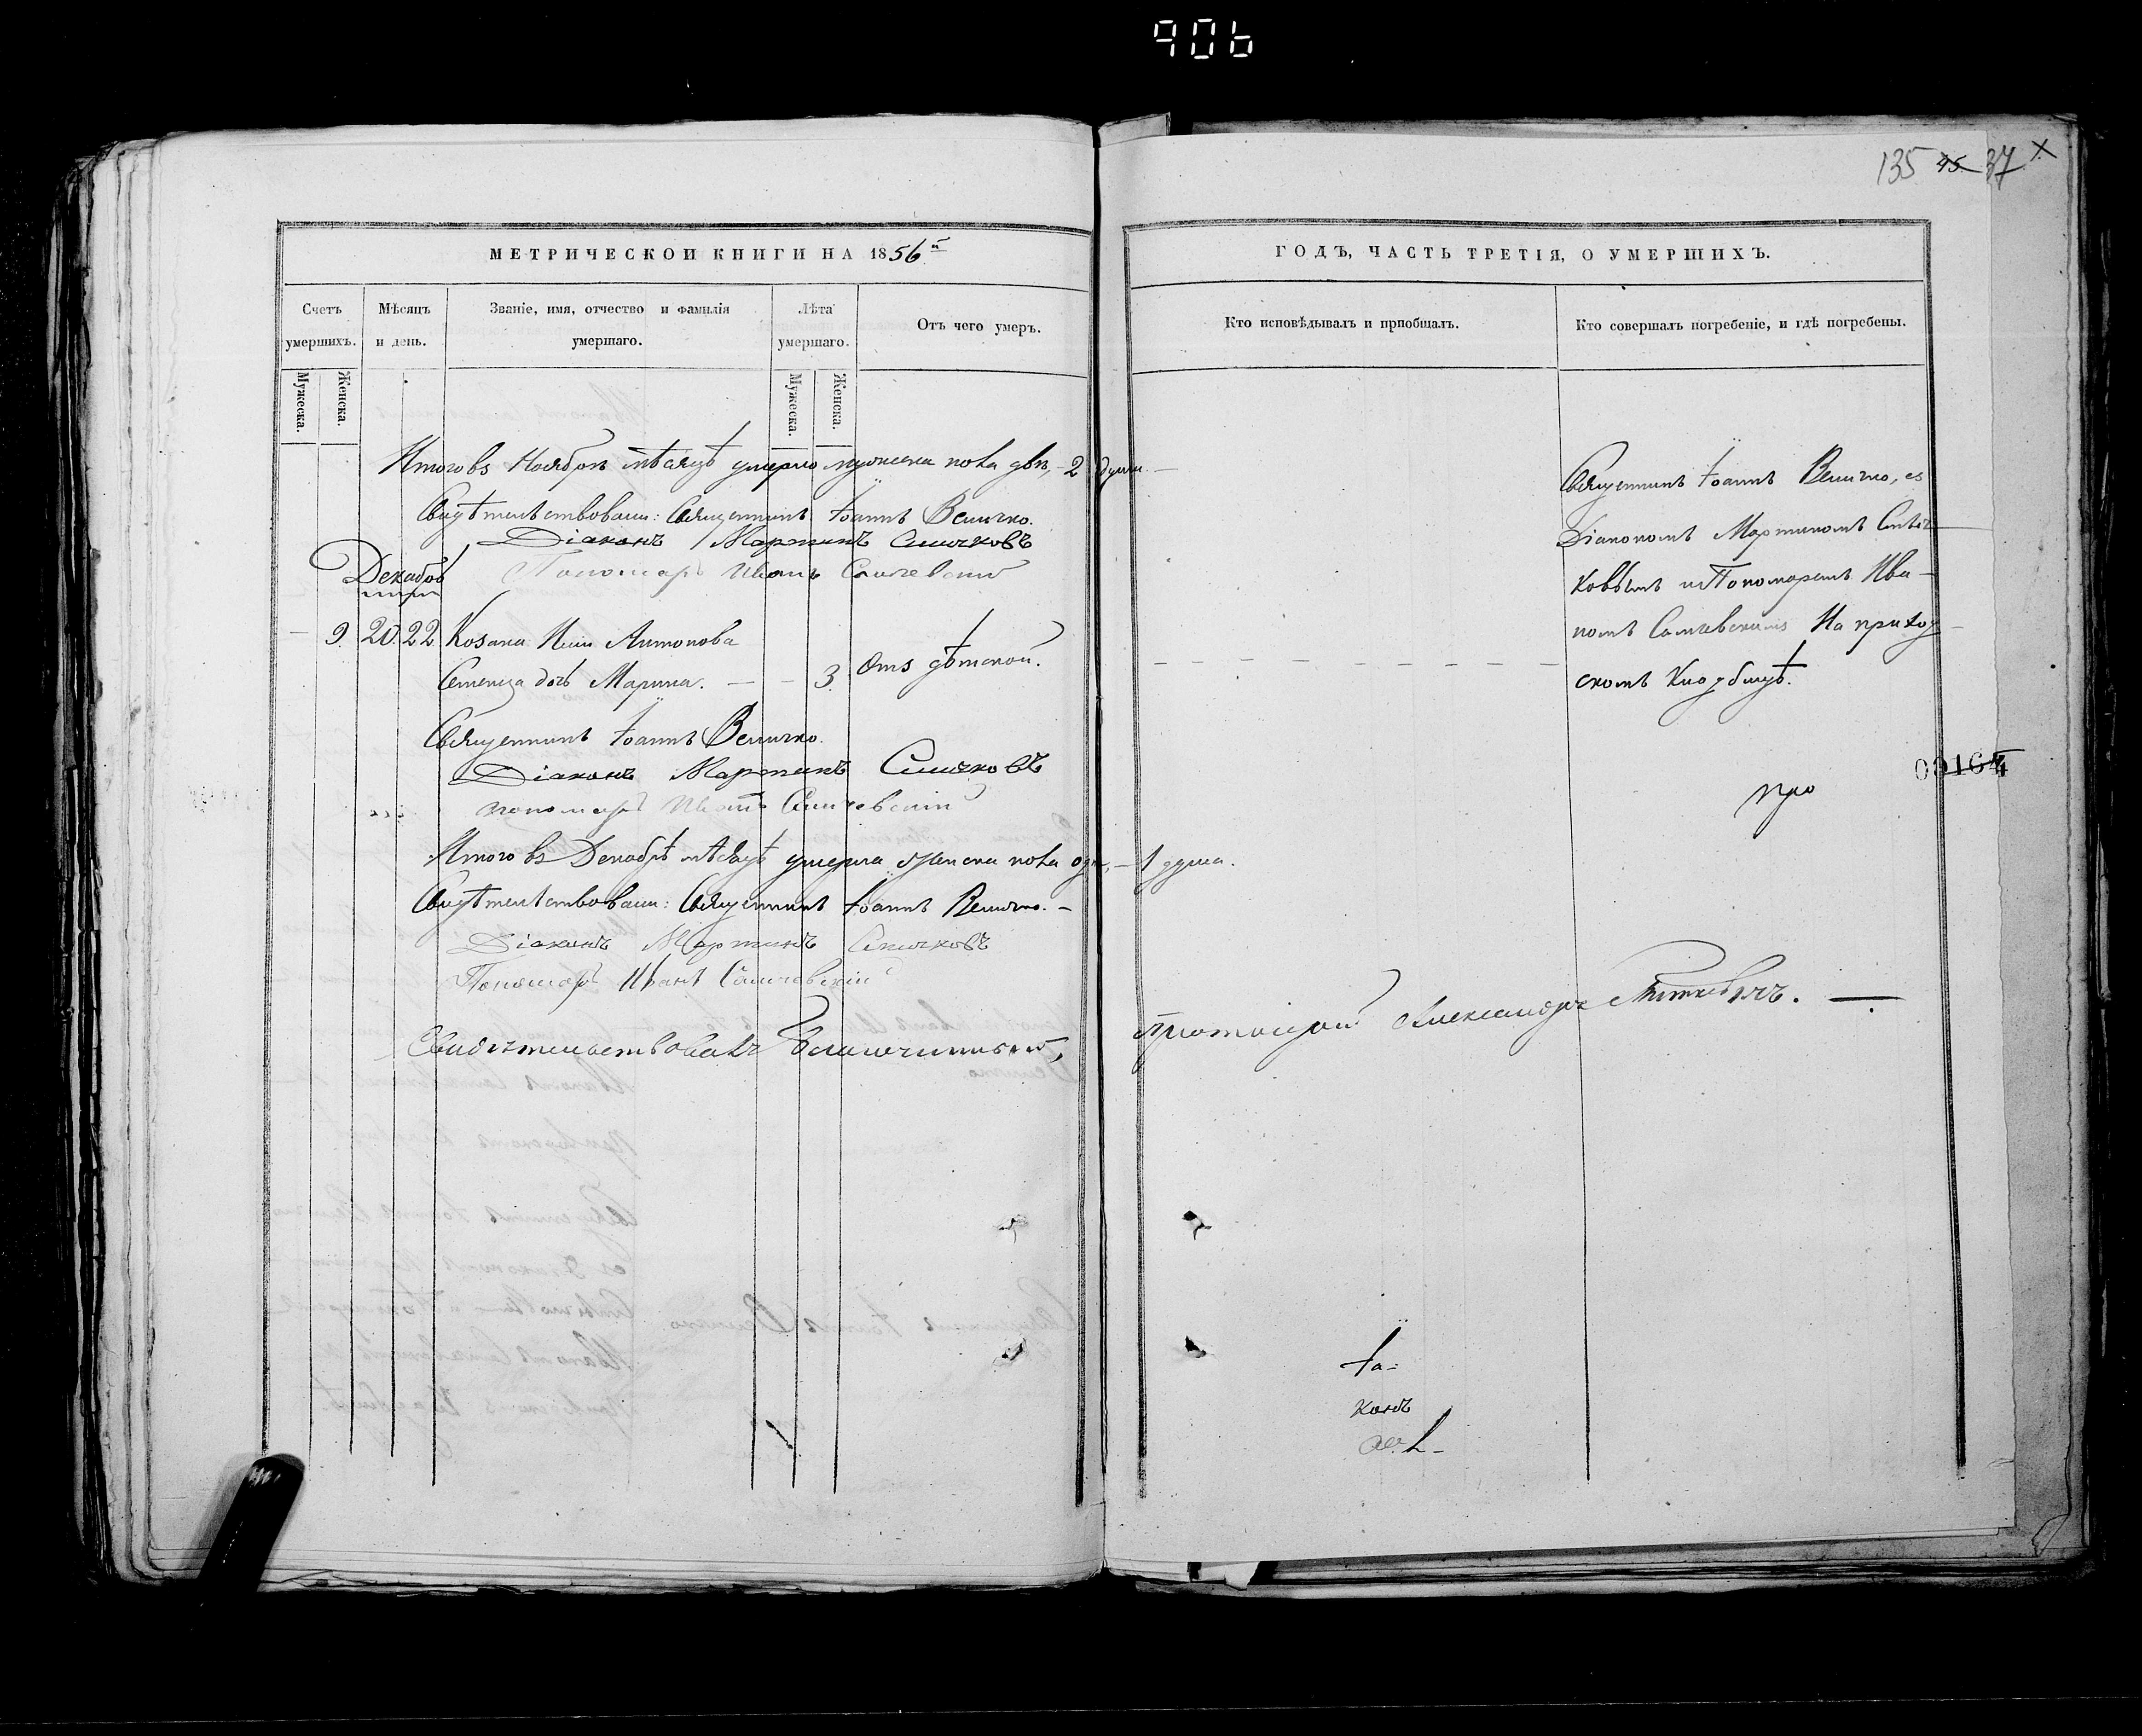 906
135 45 37 X
МЕТРИЧЕСКОЙ КНИГИ НА 1856й
Счетъ умершихъ.
Мужеска.
Женска.
Мѣсяцъ и день.
Званіе, имя, отчество и фамилія умершаго.
Лѣта умершаго.
Мужеска.
Женска.
Отъ чего умеръ.
Итого въ Ноябрѣ мѣсяцѣ умерло мужеска пола двѣ, - 2 души.
Свидѣтельствовали: Священникъ Іоаннъ Величко.
Діаконъ Мартинъ
Пономарь Иванъ
Декабрь
9. 20. 22. Козака Антонова
дочь Марина. — - 3. Отъ дѣтской.
Священникъ Іоаннъ Величко.
Діаконъ Мартинъ
пономарь Иванъ
Итого въ Декабрѣ мѣсяцѣ умерла женска пола одна, - 1 душа.
Свидѣтельствовали: Священникъ Іоаннъ Величко. -
Діаконъ Мартинъ
Пономарь Иванъ
Свидѣтельствовалъ Благочинный, Протоіерей Александръ
ГОДЪ, ЧАСТЬ ТРЕТІЯ, О УМЕРШИХЪ.
Кто исповѣдывалъ и пріобщалъ.
Кто совершалъ погребеніе, и гдѣ погребены.
Священникъ Іоаннъ Величко, съ
Діакономъ Мартиномъ
ковымъ и Пономаремъ Ива-
номъ На приход-
скомъ Кладбищѣ.
про
00164
Іа-
конъ